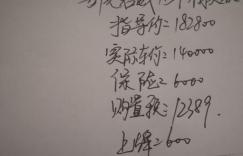 指导价=182800
实际车价=140000
保险=6000
购置税=12389.
上牌=600